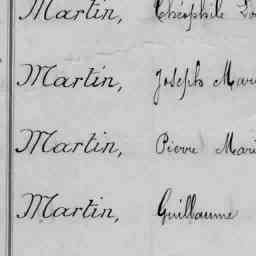 Martin, Théophile
Martin, Joseph Mari
Martin, Pierre Mari
Martin, Guillaume